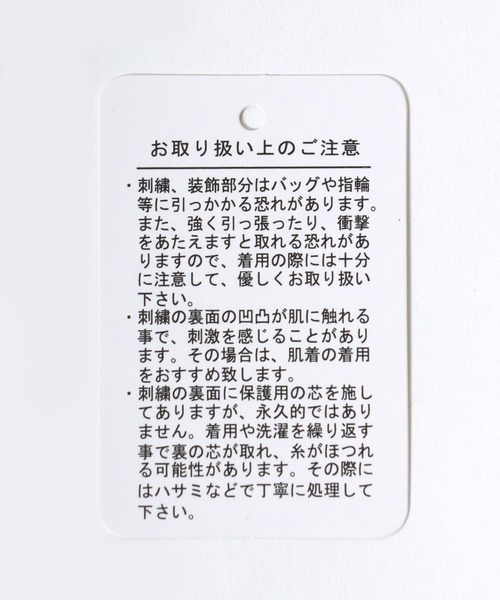 お取り扱い上のご注意
・刺繍、装飾部分はバッグや指輪
等に引っかかる恐れがあります。
また、強く引っ張ったり、衝撃
をあたえますと取れる恐れがあ
りますので、着用の際には十分
に注意して、優しくお取り扱い
下さい。
・刺繍の裏面の凹凸が肌に触れる
事で、刺激を感じることがあり
ます。その場合は、肌着の着用
をおすすめ致します。
・刺繍の裏面に保護用の芯を施し
てありますが、永久的ではあり
ません。着用や洗濯を繰り返す
事で裏の芯が取れ、糸がほつれ
る可能性があります。その際に
はハサミなどで丁寧に処理して
下さい。